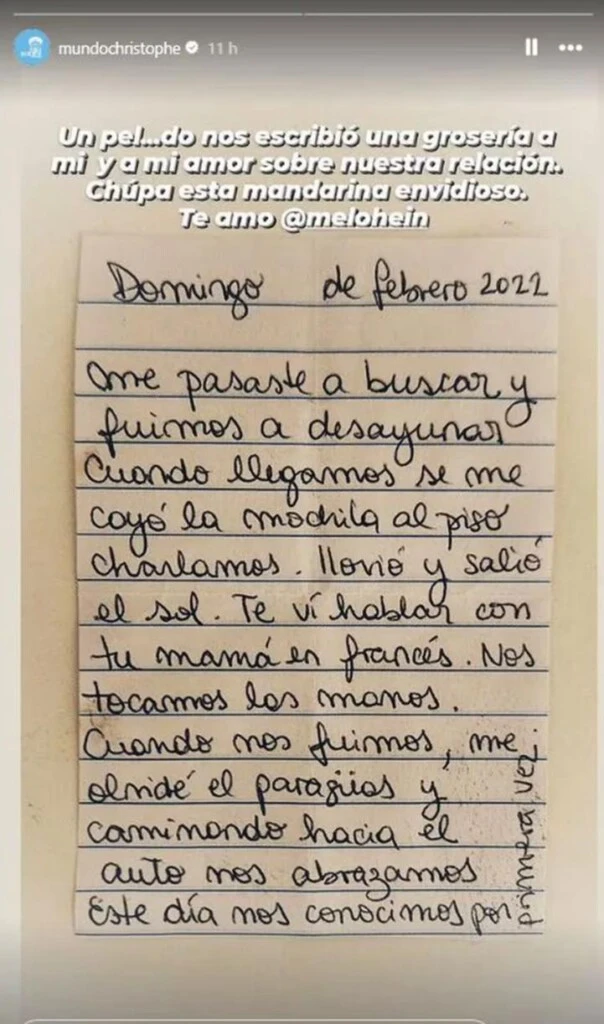 mundochristophe 11 h
Un pel...do nos escribió una grosería a
mi y a mi amor sobre nuestra relación.
Chúpa esta mandarina envidioso.
Te amo @melohein
Domingo de febrero 2022
me pasaste a buscar y
fuimos a desayunar
Cuando llegamos se me
cayó la mochila al piso
charlamos. llovió y salió
el sol. Te ví hablar con
tu mamá en francés. Nos
tocamos las manos.
Cuando nos fuimos, me
olvidé el paragüas y
caminando hacia el
auto nos abrazamos
Este día nos conocimos por
primera vez.